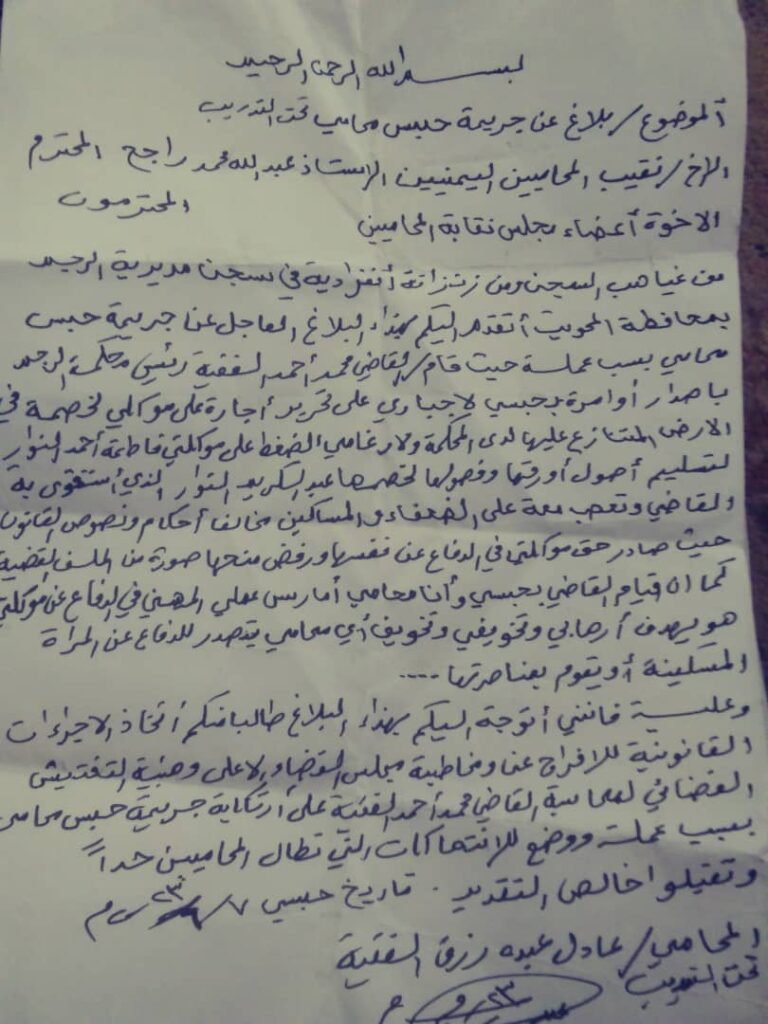 بسم الله الرحمن الرحيم
الموضوع / بلاغ عن جريمة حبس محامي تحت التدريب
الاخ / نقيب المحاميين اليمنيين الاستاذ عبدالله محمد راجح المحترم
الاخوة أعضاء مجلس نقابة المحاميين المحترمون
من غياهب السجن ومن زنزانة أنفرادية في سجن مديرية الرجم
بمحافظة المحويت أتقدم اليكم بهذاء البلاغ العاجل عن جريمة حبس
محامي بسبب عملة حيث قام / القاضي محمد أحمد الفقية رئيس محكمة الرجم
باصدار أوامرة بحبسي لإجباري على تحرير أجارة على موكلي لخصمة في
الارض المتنازع عليها لدى المحكمة ولارغامي الضغط على موكلتي فاطمة أحمد النوار
لتسليم أصول أورقها وفصولها لخصمها عبدالكريم النوار الذي أستقوى بة
القاضي وتعصب معة على الضعفاء والمساكين مخالف أحكام ونصوص القانون
حيث صادر حق موكلتي في الدفاع عن نفسها ورفض منحها صورة من الملف القضية
كما ان قيام القاضي بحبسي وأنا محامي أمارس عملي المهني في الدفاع عن موكلتي
هو يهدف أرهابي وتخويفي وتخويف أي محامي يتصدر للدفاع عن المراة
المسكينة أو يقوم بمناصرتها ....
وعلية فانني أتوجة اليكم بهذاء البلاغ طالبا منكم أتخاذ الاجراءات
القانونية للافراج عنا ومخاطبة مجلس القضاء الاعلى وهيئة التفتيش
القضائي لمحاسبة القاضي محمد أحمد الفقية على أرتكابة جريمة حبس محامي
بسبب عملة ووضع للانتهاكات التي تطال المحاميين حداً
وتقبلوا خالص التقدير . تاريخ حبسي ٧
المحامي / عادل عبده رزق الفقية
تحت التدريب